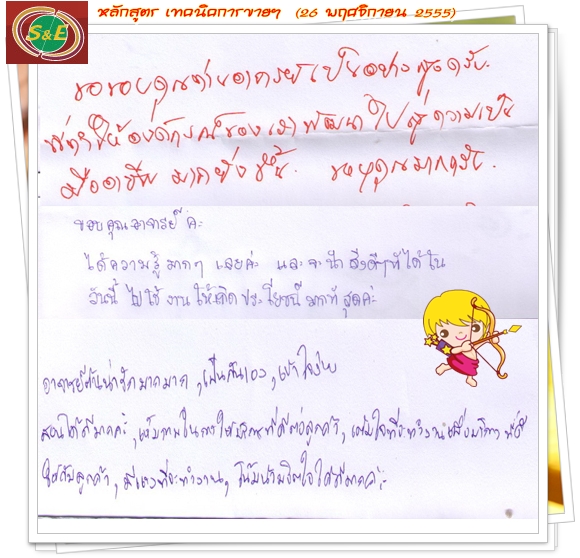 S&E
หลักสูตร เทคนิคการขายฯ (26 พฤศจิกายน 2555)
ขอขอบคุณท่านอาจารย์เป็นอย่างสูงครับ
ที่ทำให้องค์กรของเราพัฒนาไปสู่ความเป็น
มืออาชีพ มากยิ่งขึ้น. ขอบคุณมากครับ.
ขอบคุณอาจารย์ ค่ะ
ได้ความรู้มากๆ เลยค่ะ และจะนำสิ่งดีๆที่ได้ใน
วันนี้ ไปใช้งานให้เกิดประโยชน์มากที่สุดค่ะ
อาจารย์น่ารักมากมาก, เป็นกันเอง, เข้าใจง่าย
สอนได้ดีมากค่ะ, ในการให้บริการที่ดีต่อลูกค้า, เต็มใจที่จะทำงานเพื่อบริการที่ดี
ให้กับลูกค้า, มีแรงที่จะทำงาน, โน้มน้าวจิตใจได้ดีมากค่ะ